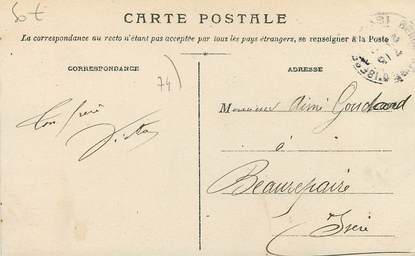 50 t
CARTE POSTALE
La correspondance au recto n'étant pas acceptée par tous les pays étrangers, se renseigner à la Poste
CORRESPONDANCE
ADRESSE
74
Monsieur Aimé
Ton frère
à
Beaurepaire
Isère